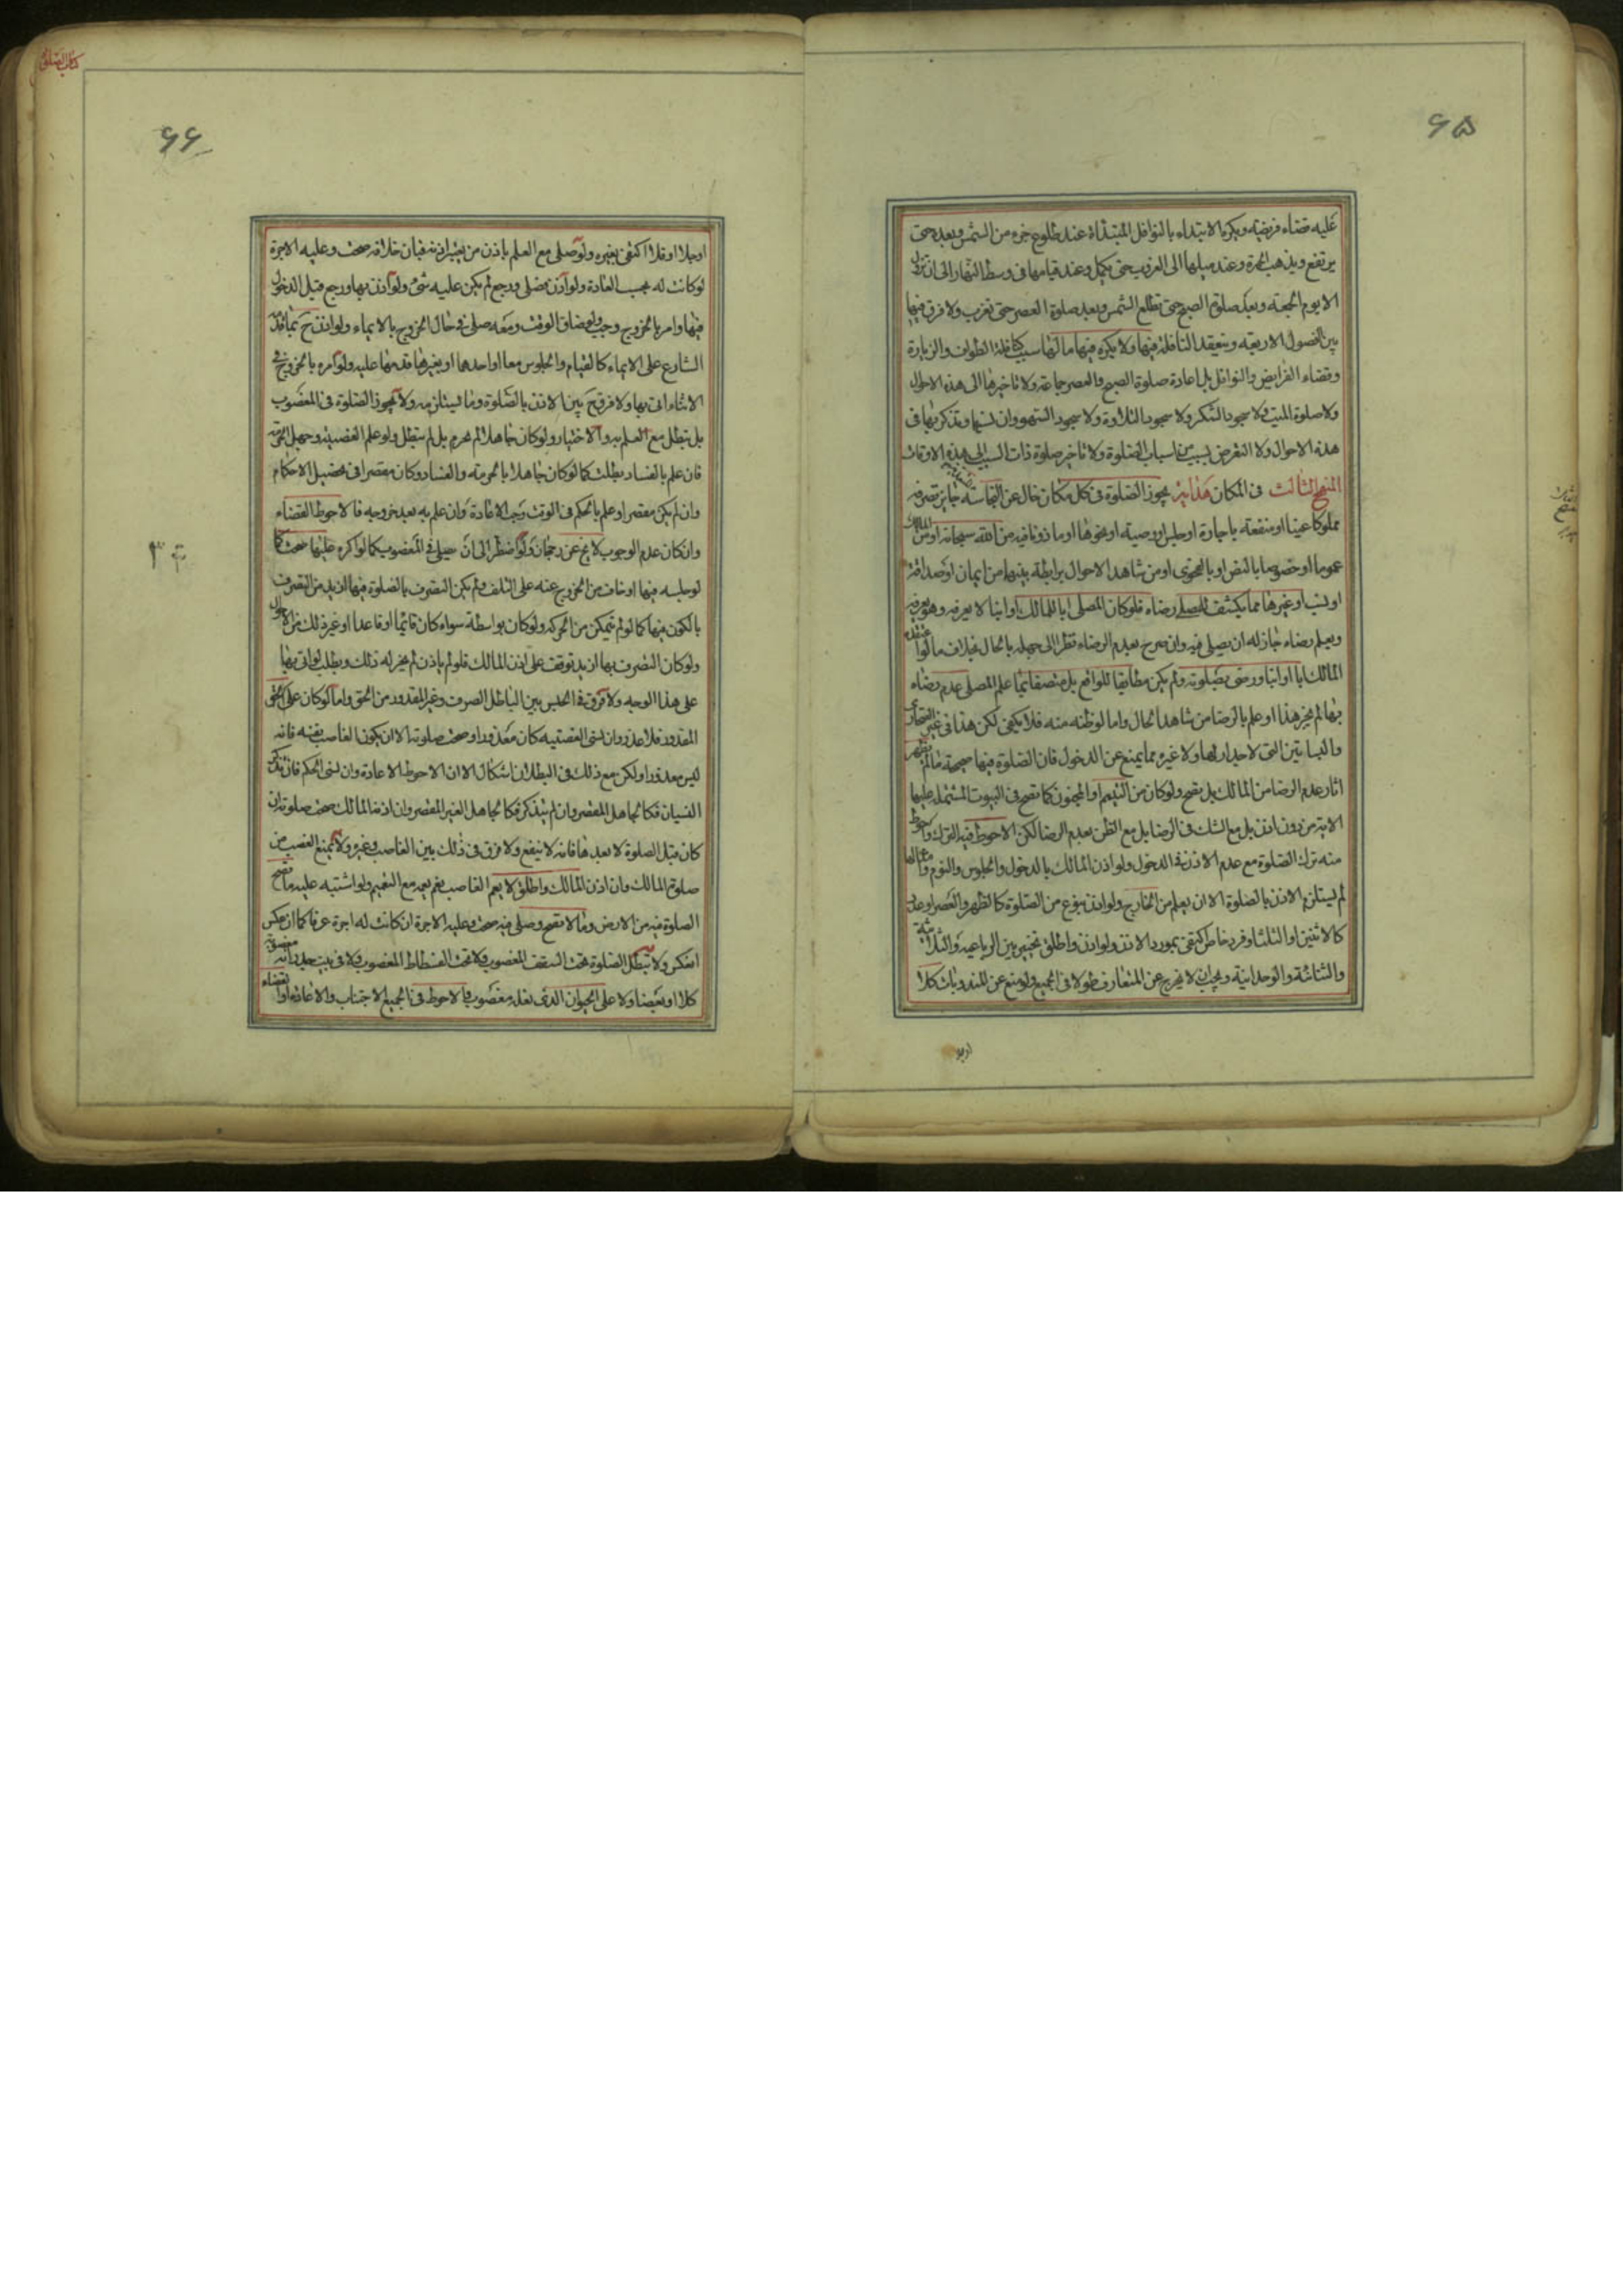 ٦٥
عليه قضاء فريضة ويكره الابتداء بالنوافل المبتداة عند طلوع جزء من الشمس وبعده حتى
يرتفع ويذهب الحمرة وعند ميلها الى الغروب حتى يكمل وعند قيامها فى وسط النهار الى ان تزول
الا يوم الجمعة وبعد صلوة الصبح حتى تطلع الشمس وبعد صلوة العصر حتى تغرب ولا فرق فيها
بين الفصول الاربعة وينعقد النافلة فيها ولا يكره فيها ما لها سبب كنافلة الطواف والزيارة
وقضاء الفرايض والنوافل بل اعادة صلوة الصبح والعصر جماعة ولا تاخيرها الى هذه الاحوال
ولا صلوة الميت ولا سجود الشكر ولا سجود التلاوة ولا سجود السهو وان نسيها وتذكر بها فى
هذه الاحوال ولا التعرض لسبب من اسباب الصلوة ولا تاخير صلوة ذات السبب الى هذه الاوقات
المنهج الثالث فى المكان هداية يجوز الصلوة فى كل مكان خال عن النجاسة جايز تصرفه
مملوكا عينا او منفعة باجارة او حبس او وصية او نحوها او ماذونا فيه من الله سبحانه او من المالك
عموما او خصوصا بالنص او بالفحوى او من شاهد الاحوال برابطة بينهما من ايمان او صداقة
او نسب او غيرها مما يكشف للمصلى رضاه فلو كان المصلى ابا للمالك او ابنا لا يعرفه وهو يعرفه
ويعلم رضاه جاز له ان يصلى فيه وان صرح بعدم الرضاء نظرا الى جهله بالحال بخلاف ما لو اعتقده
المالك ابا او ابنا ورضى بصلوته ولم يكن مطابقا للواقع بل متصفا بما علم المصلى عدم رضاه
بها لم يجز هذا او علم بالرضا من شاهد الحال واما لو ظنه منه فلا يكفى لكن هذا فى غير الصحارى
والبساتين التى لا جدار لها ولا غيره مما يمنع عن الدخول فان الصلوة فيها صحيحة ما لم يظهر
اثار عدم الرضا من المالك بل تصح ولو كان من اليتيم او المجنون كما تصح فى البيوت المشتمل عليها
الاية من دون اذن بل مع الشك فى الرضا بل مع الظن بعدم الرضا لكن الاحوط فيه الترك واحوط
منه ترك الصلوة مع عدم الاذن فى الدخول ولو اذن المالك بالدخول والجلوس والنوم
لم يستلزم الاذن بالصلوة الا ان يعلم من الخارج ولو اذن بنوع من الصلوة كالظهر والعصر او عدد
كالاثنين او الثلث او فرد خاص اكتفى بمورد الاذن ولو اذن واطلق تخير بين الرباعية والثلاثية
والثنائية والوحدانية ويجب ان لا يخرج عن المتعارف طولا فى الجميع ولو منع عن المندوبات كلا
او جلا
كتاب الصلوة
٦٦
او جلا او قلا اكتفى بغيره ولو صلى مع العلم باذن من يعتبر اذنه فبان خلافه صحت وعليه الاجرة
لو كانت له بحسب العادة ولو اذن فصلى ورجع لم يكن عليه شئ ولو اذن بها ورجع قبل الدخول
فيها وامر بالخروج وجب ولو ضاق الوقت ومعه صلى فى حال الخروج بالايماء ولو اذن ح بما قدم
الشارع على الايماء كالقيام والجلوس معا او احدهما او بغيرها قدمها عليه ولو امره بالخروج فى
الاثناء اتى بها ولا فرق ح بين الاذن بالصلوة وما يستلزمه ولا يجوز الصلوة فى المغصوب
بل تبطل مع العلم به والاختيار ولو كان جاهلا لم يحرم بل لم تبطل ولو علم الغصبية وجهل الحرمة
فان علم بالفساد بطلت كما لو كان جاهلا بالحرمة والفساد وكان مقصرا فى تحصيل الاحكام
وان لم يكن مقصرا وعلم بالحكم فى الوقت وجب الاعادة وان علم به بعد خروجه فالاحوط القضاء
وان كان عدم الوجوب لا يخ عن رجحان ولو اضطر الى ان يصلى فى المغصوب كما لو اكره عليها صحت كما
لو حبسه فيها او خاف من الخروج عنه على التلف ولم يكن التصرف بالصلوة فيها ازيد من التصرف
بالكون فيها كما لو لم يتمكن من الحركة ولو كان بواسطة سواء كان قائما او قاعدا او غير ذلك من الاحوال
ولو كان التصرف بها ازيد توقف على اذن المالك فلو لم ياذن لم يجز له ذلك وبطلت لو اتى بها
على هذا الوجه ولا فرق فى الحبس بين الباطل الصرف وغير المقدور من الحق واما لو كان على الحق
المقدور فلا عذر وان نسى الغصبية كان معذورا وصحت صلوته الا ان يكون الغاصب بنفسه فانه
ليس معذورا ولكن مع ذلك فى البطلان اشكال الا ان الاحوط الاعادة وان نسى الحكم فان تذكر
النسيان فكالجاهل المقصر وان لم يتذكر فكالجاهل الغير المقصر وان اذن المالك صحت صلوته ان
كان قبل الصلوة لا بعدها فانه لا ينفع ولا فرق فى ذلك بين الغاصب وغيره ولا يمنع الغصب من
صلوة المالك وان اذن المالك واطلق لا يعم الغاصب نعم يعمه مع التعميم ولو اشتبه عليه ما تصح
الصلوة فيه من الارض وما لا تصح وصلى فيه صحت وعليه الاجرة ان كانت له اجرة عرفا كما ان عكس
انعكس ولا تبطل الصلوة تحت السقف المغصوب ولا تحت الفسطاط المغصوب ولا فى بيت جدرانه مغصوبة
كلا او بعضا ولا على الحيوان الذى نعله مغصوب فالاحوط فى الجميع الاجتناب والاعادة او القضاء